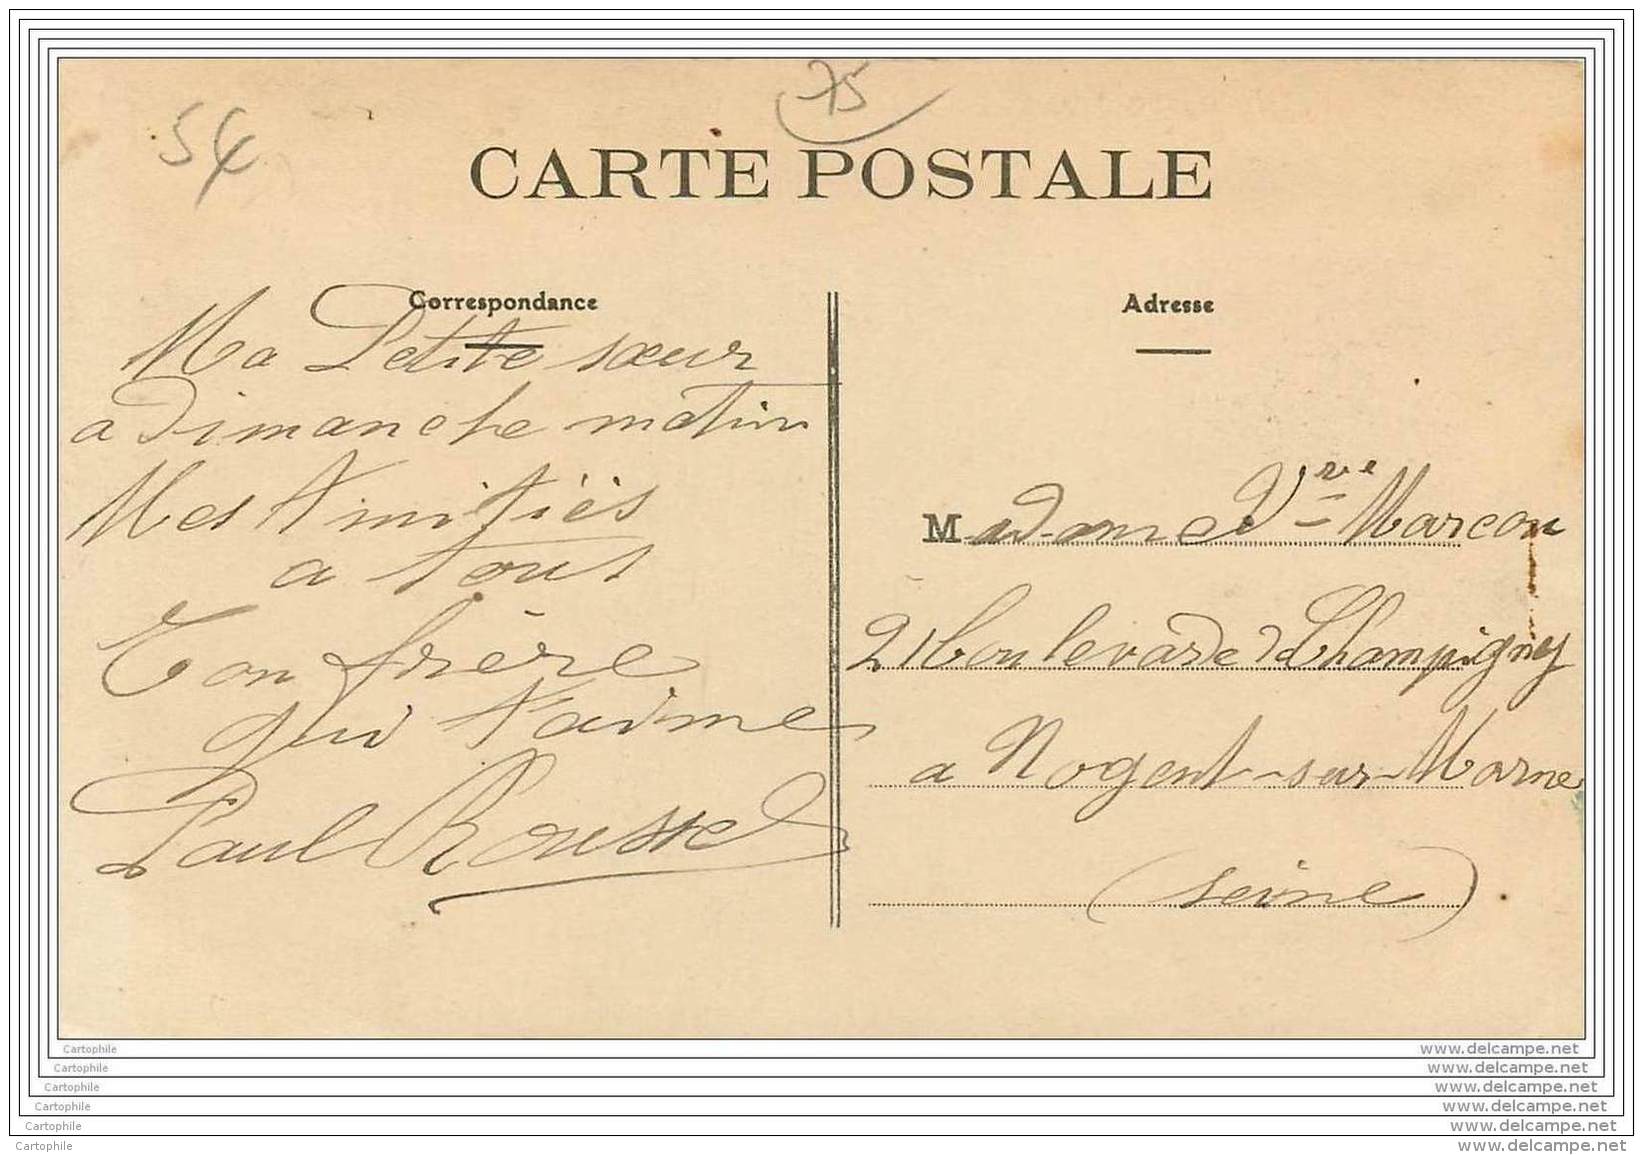 75
54
CARTE POSTALE
Correspondance
Ma Petite sœur
a Dimanche matin
Mes Amitiés
a tous
Ton frère
qui t'aime
Paul Roussel
Adresse
Madame Vve Marcou
21 boulevard de Champigny
a Nogent-sur-Marne
(seine)
Cartophile www.delcampe.net
Cartophile www.delcampe.net
Cartophile www.delcampe.net
Cartophile www.delcampe.net
Cartophile www.delcampe.net
Cartophile www.delcampe.net